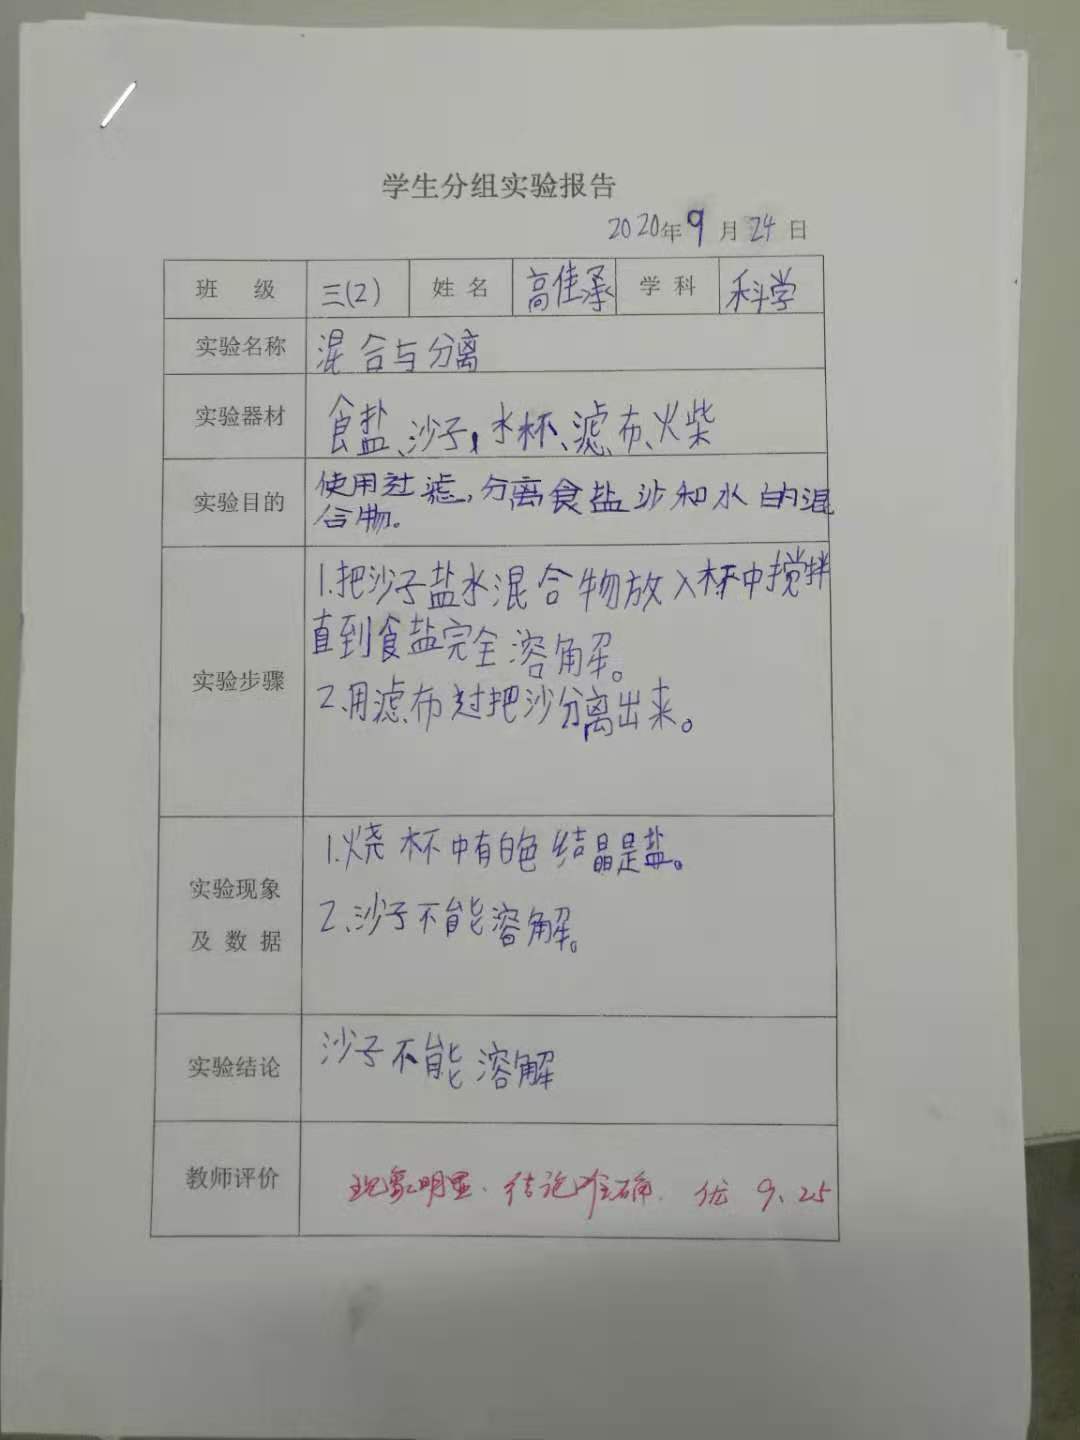 学生分组实验报告
2020年9月24日
班 级 三(2) 姓 名 高佳承 学 科 科学
实验名称 混合与分离
实验器材 食盐、沙子,水杯、滤布、火柴
实验目的 使用过滤,分离食盐沙和水的混
合物。
1.把沙子盐水混合物放入杯中搅拌
直到食盐完全溶解。
实验步骤
2.用滤布过把沙分离出来。
1.烧杯中有白色结晶是盐。
实验现象
2.沙子不能溶解。
及 数 据
实验结论 沙子不能溶解
教师评价 现象明显.结论准确. 优 9.25